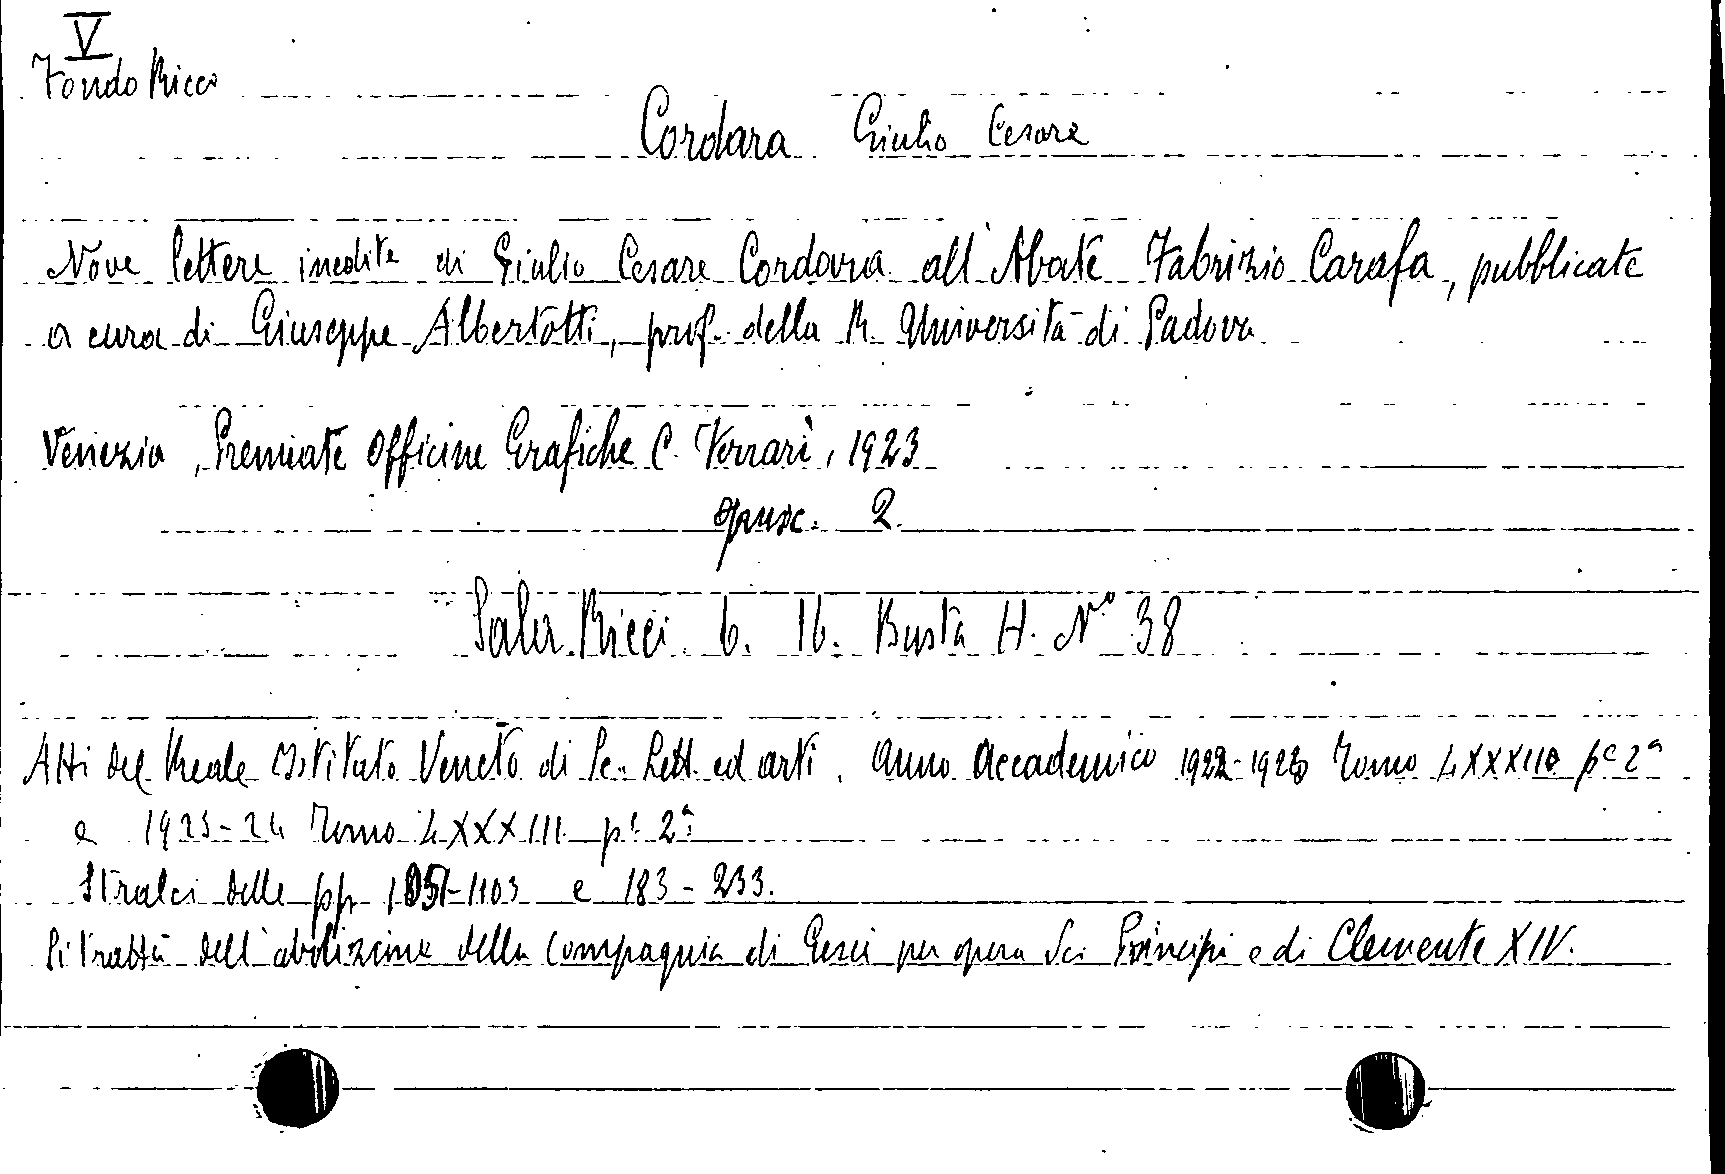 V
Fondo Ricci
Cordara Giulio Cesare
Nove lettere inedite di Giulio Cesare Cordara all'Abate Fabrizio Carafa, pubblicate
a cura di Giuseppe Albertotti, prof. della R. Università di Padova
Venezia, Premiate Officine Grafiche C. Ferrari, 1923
opusc. 2.
Sala Ricci 6. 16. Busta H. N° 38
Atti del Reale Istituto Veneto di Sc. Lett. ed arti. Anno Accademico 1922-1923 Tomo LXXXII pe 2a
e 1923-24 Tomo LXXXIII pe 2a
Stralci delle pp 1051-1103 e 183-233.
Si tratta dell'abolizione della Compagnia di Gesù per opera dei Principi e di Clemente XIV.